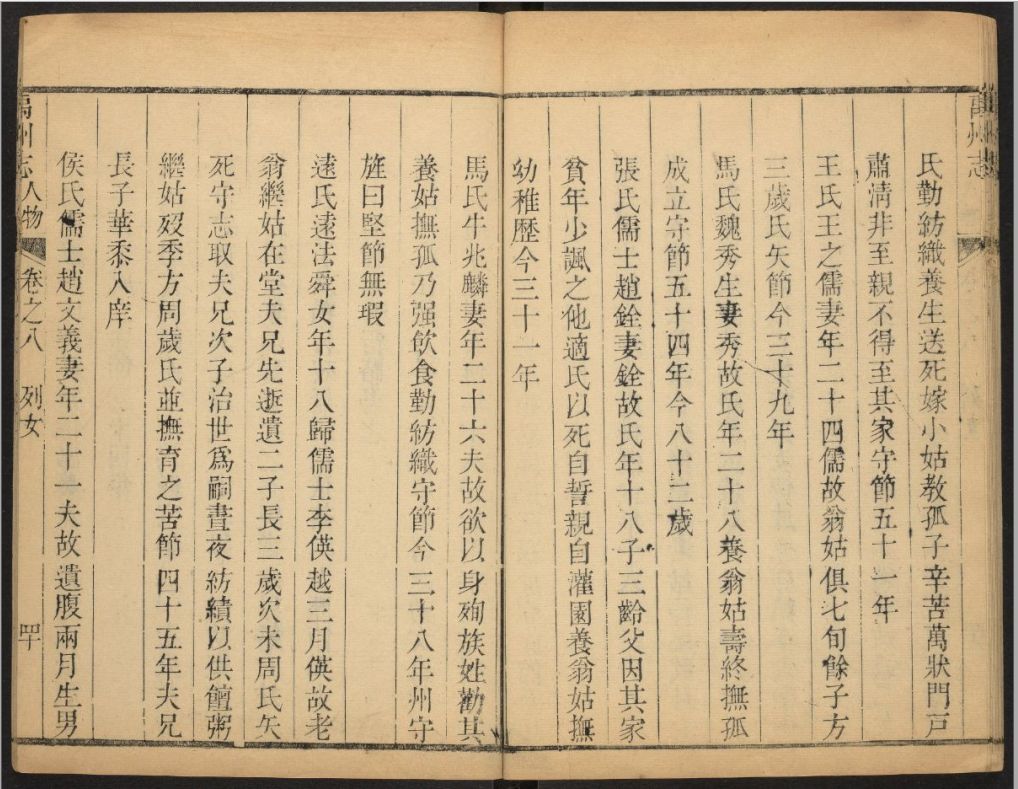 禹州志
氏勤紡織養生送死嫁小姑教孤子辛苦萬狀門戸
肅清非至親不得至其家守節五十一年
王氏王之儒妻年二十四儒故翁姑俱七旬餘子方
三歲氏矢節今三十九年
馬氏魏秀生妻秀故氏年二十八養翁姑壽終撫孤
成立守節五十四年今八十二歲
張氏儒士趙銓妻銓故氏年十八子三齡父因其家
貧年少諷之他適氏以死自誓親自灌園養翁姑撫
幼稚歷今三十一年
馬氏牛兆麟妻年二十六夫故欲以身殉族姓勸其
養姑撫孤乃强飲食勤紡織守節今三十八年州守
旌曰堅節無瑕
逯氏逯法舜女年十八歸儒士李僙越三月僙故老
翁繼姑在堂夫兄先逝遺二子長三歲次未周氏矢
死守志取夫兄次子治世爲嗣晝夜紡績以供饘粥
繼姑歿季方周歲氏並撫育之苦節四十五年夫兄
長子華黍入庠
侯氏儒士趙文義妻年二十一夫故遺腹兩月生男
禹州志人物 卷之八 列女 四十